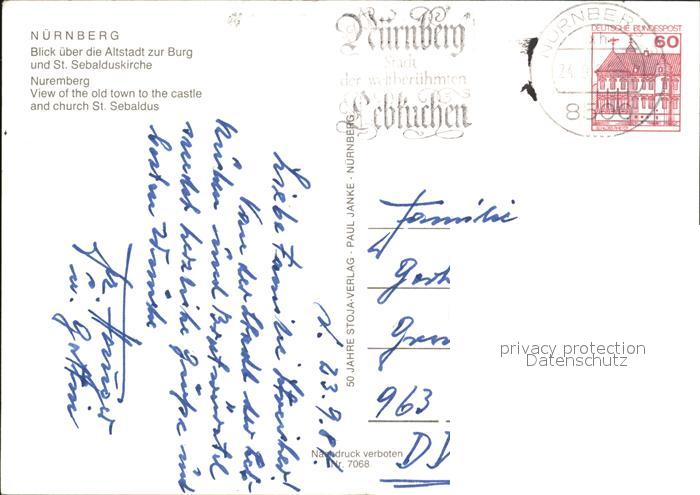 NÜRNBERG
Blick über die Altstadt zur Burg
und St. Sebalduskirche
Nuremberg
View of the old town to the castle
and church St. Sebaldus
Nürnberg
Stadt
der weltberühmten
Lebkuchen
NÜRNBERG
8500
DEUTSCHE BUNDESPOST
60
50 JAHRE STOJA-VERLAG · PAUL JANKE · NÜRNBERG
N. 23.9.82
Liebe Familie
Von der Stadt der Leb-
kuchen und Bratwürstel
sendet herzliche Grüße und
besten Wünsche
Fr.
u. Gattin
Familie
963
DD
Nachdruck verboten
Nr. 7068
privacy protection
Datenschutz